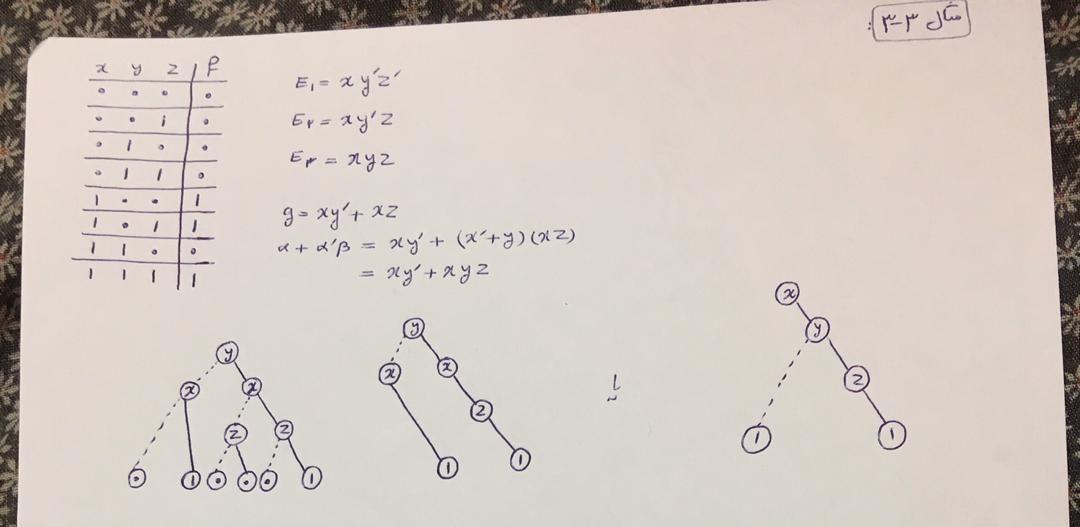 مثال ۳-۳:
x y z f
۰ ۰ ۰ ۰
۰ ۰ ۱ ۰
۰ ۱ ۰ ۰
۰ ۱ ۱ ۰
۱ ۰ ۰ ۱
۱ ۰ ۱ ۱
۱ ۱ ۰ ۰
۱ ۱ ۱ ۱
E₁ = xy′z′
E۲ = xy′z
E۳ = xyz
g = xy′ + xz
α + α′β = xy′ + (x′+y)(xz)
= xy′ + xyz
y
x x
z z
۰ ۱ ۰ ۰ ۰ ۱
y
x x
z
۱ ۱
یا
x
y
z
۱ ۱